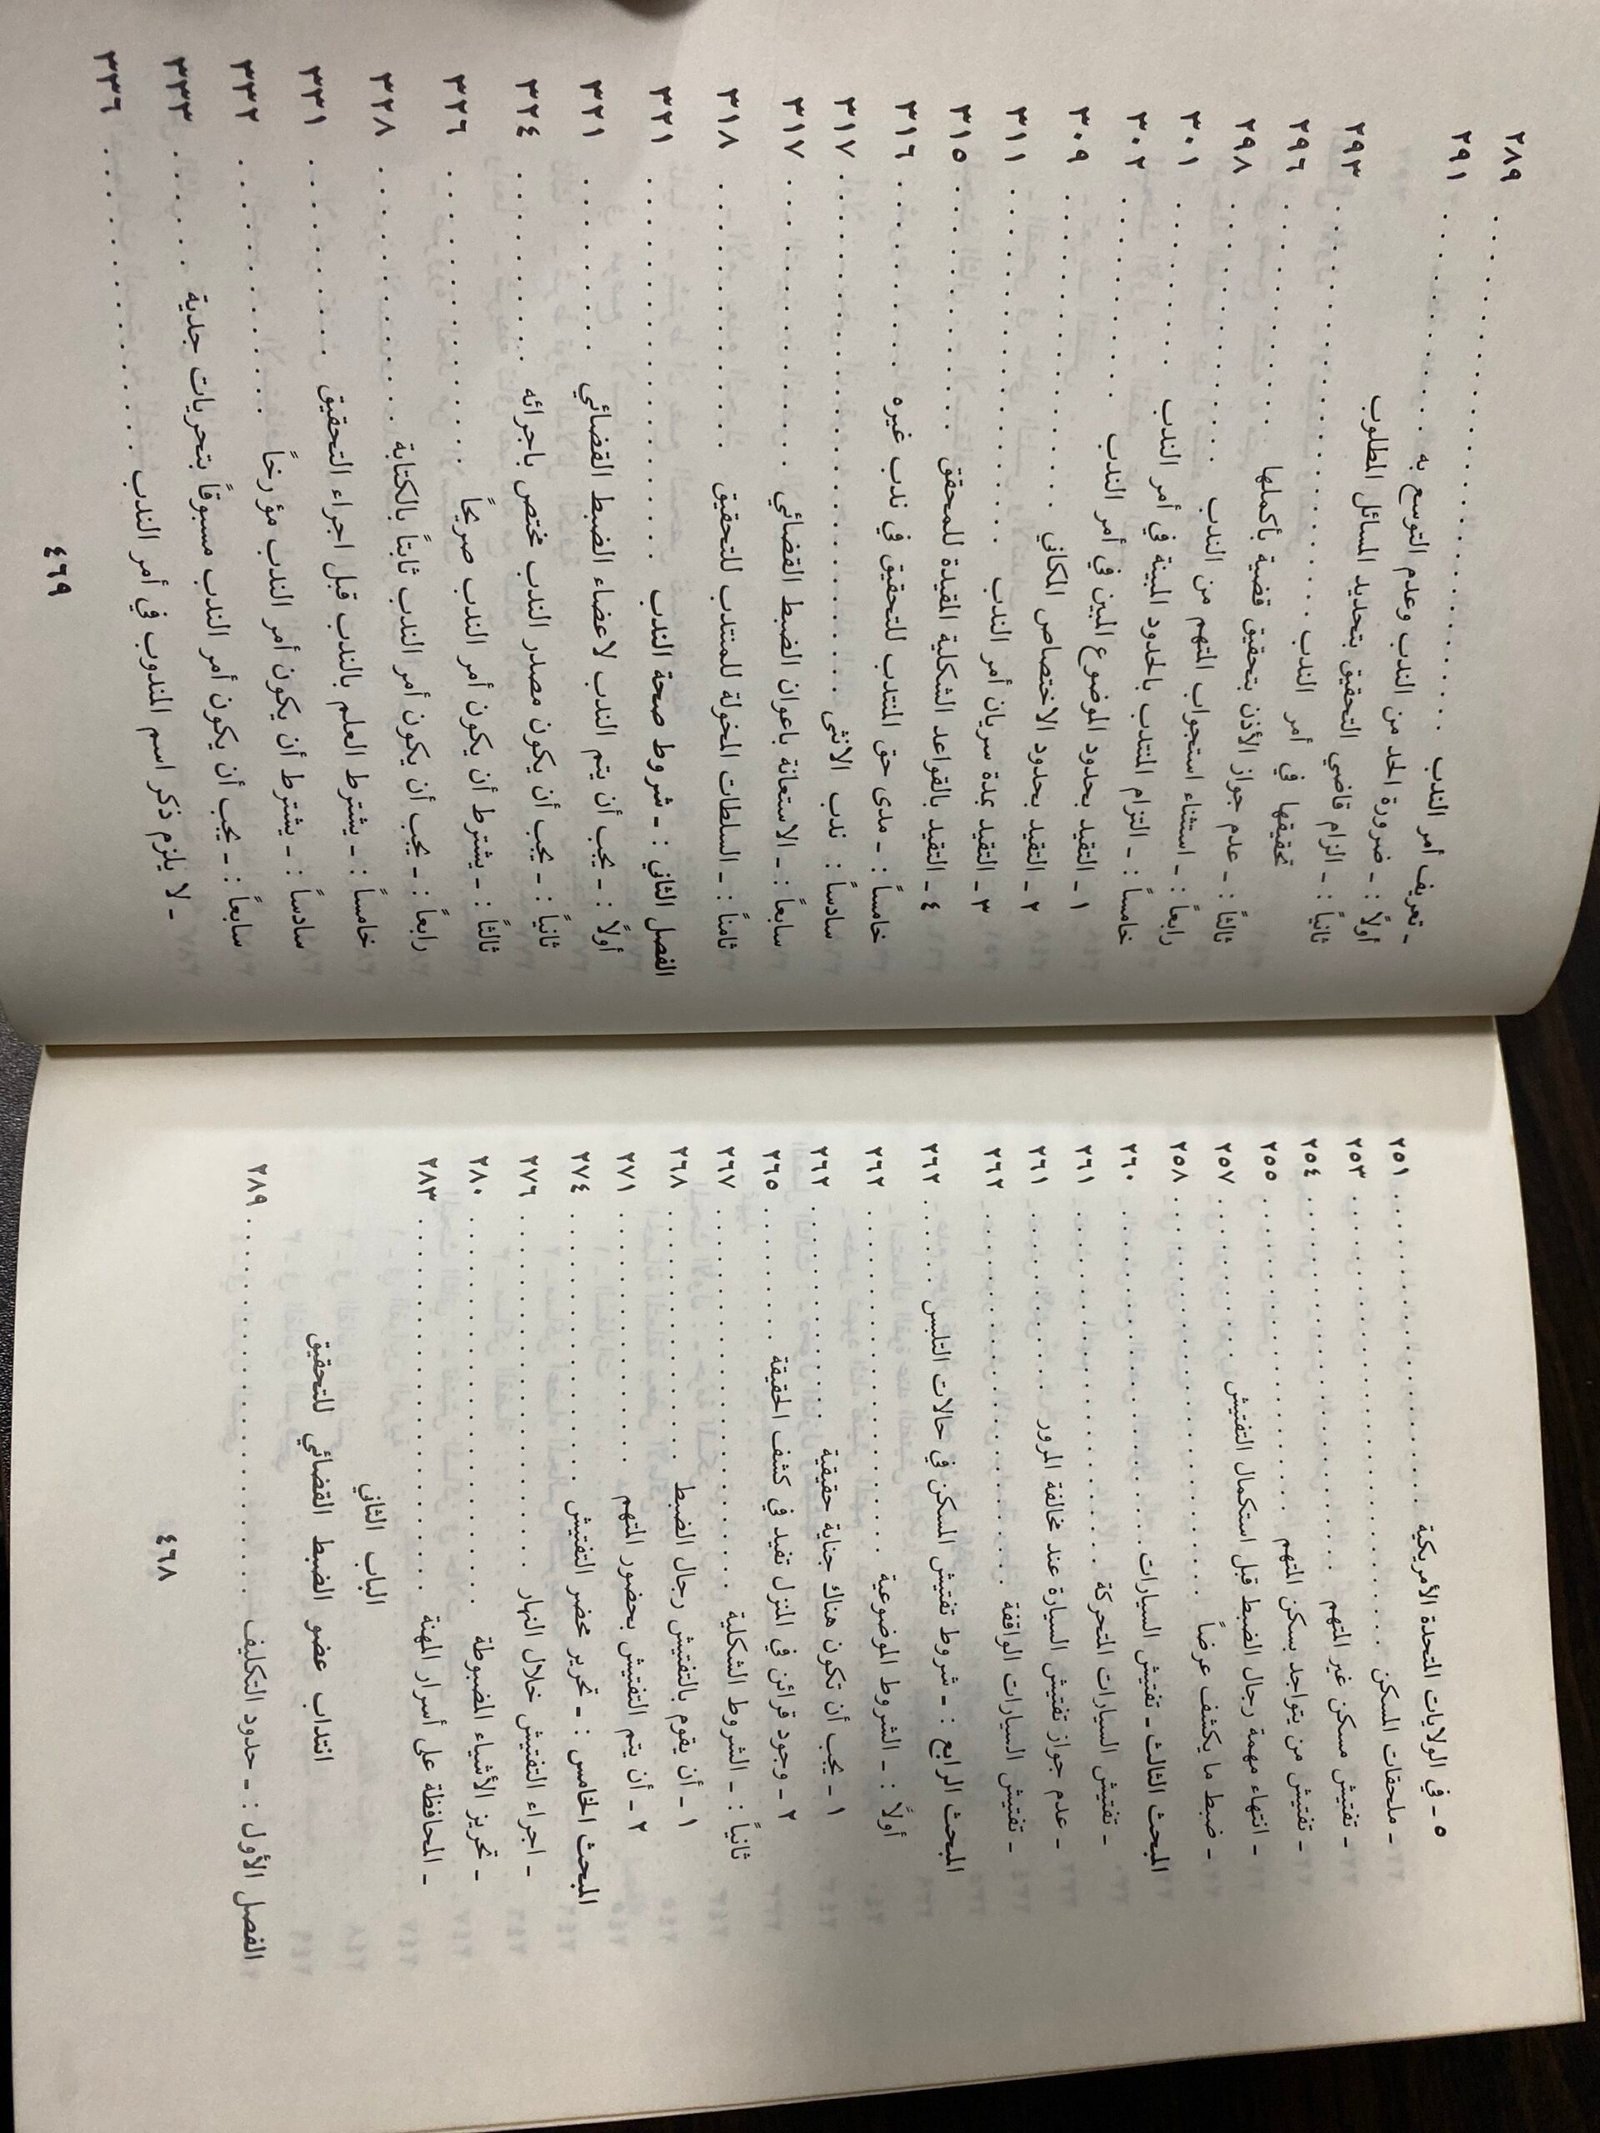 ٥ - في الولايات المتحدة الأمريكية . . . . . . . . . . . . . . . . ٢٥١
- ملحقات المسكن . . . . . . . . . . . . . . . . ٢٥٣
- تفتيش مسكن غير المتهم . . . . . . . . . . . . . . . . ٢٥٤
- تفتيش من يتواجد بسكن المتهم . . . . . . . . . . . . . . . . ٢٥٥
- انتهاء مهمة رجال الضبط قبل استكمال التفتيش . . . . . . . . . . ٢٥٧
- ضبط ما يكشف عرضاً . . . . . . . . . . . . . . . . ٢٥٨
المبحث الثالث - تفتيش السيارات . . . . . . . . . . . . . . . . ٢٦٠
- تفتيش السيارات المتحركة . . . . . . . . . . . . . . . . ٢٦١
- عدم جواز تفتيش السيارة عند مخالفة المرور . . . . . . . . . . ٢٦١
- تفتيش السيارات الواقفة . . . . . . . . . . . . . . . . ٢٦٢
المبحث الرابع : - شروط تفتيش المسكن في حالات التلبس . . . . . . ٢٦٢
أولاً : - الشروط الموضوعية . . . . . . . . . . . . . . . . ٢٦٢
١ - يجب أن تكون هناك جناية حقيقية . . . . . . . . . . . . ٢٦٢
٢ - وجود قرائن في المنزل تفيد في كشف الحقيقة . . . . . . . . ٢٦٥
ثانياً : - الشروط الشكلية . . . . . . . . . . . . . . . . ٢٦٧
١ - أن يقوم بالتفتيش رجال الضبط . . . . . . . . . . . . . . ٢٦٨
٢ - أن يتم التفتيش بحضور المتهم . . . . . . . . . . . . . . ٢٧١
المبحث الخامس : - تحرير محضر التفتيش . . . . . . . . . . . . ٢٧٤
- اجراء التفتيش خلال النهار . . . . . . . . . . . . . . . . ٢٧٦
- تحريز الأشياء المضبوطة . . . . . . . . . . . . . . . . ٢٨٠
- المحافظة على أسرار المهنة . . . . . . . . . . . . . . . . ٢٨٣
الباب الثاني
انتداب عضو الضبط القضائي للتحقيق
الفصل الأول : - حدود التكليف . . . . . . . . . . . . . . . . ٢٨٩
٤٦٨
. . . . . . . . . . . . . . . . ٢٨٩
- تعريف أمر الندب . . . . . . . . . . . . . . . . ٢٩١
أولاً : - ضرورة الحد من الندب وعدم التوسع به . . . . . . . . . . ٢٩١
ثانياً : - الزام قاضي التحقيق بتحديد المسائل المطلوب
تحقيقها في أمر الندب . . . . . . . . . . . . . . . . ٢٩٣
ثالثاً : - عدم جواز الأذن بتحقيق قضية بأكملها . . . . . . . . . . ٢٩٦
رابعاً : - استثناء استجواب المتهم من الندب . . . . . . . . . . . . ٢٩٨
خامساً : - التزام المنتدب بالحدود المبينة في أمر الندب . . . . . . . . ٣٠١
١ - التقيد بحدود الموضوع المبين في أمر الندب . . . . . . . . . . ٣٠٢
٢ - التقيد بحدود الاختصاص المكاني . . . . . . . . . . . . . . ٣٠٩
٣ - التقيد بمدة سريان أمر الندب . . . . . . . . . . . . . . ٣١١
٤ - التقيد بالقواعد الشكلية المقيدة للمحقق . . . . . . . . . . . . ٣١٥
خامساً : - مدى حق المنتدب للتحقيق في ندب غيره . . . . . . . . ٣١٦
سادساً : ندب الانثى . . . . . . . . . . . . . . . . ٣١٧
سابعاً : - الاستعانة باعوان الضبط القضائي . . . . . . . . . . . . ٣١٧
ثامناً : - السلطات المخولة للمنتدب للتحقيق . . . . . . . . . . . . ٣١٨
الفصل الثاني : - شروط صحة الندب . . . . . . . . . . . . . . . . ٣٢١
أولاً : - يجب أن يتم الندب لاعضاء الضبط القضائي . . . . . . . . ٣٢١
ثانياً : - يجب أن يكون مصدر الندب مختص باجرائه . . . . . . . . ٣٢٤
ثالثاً : - يشترط أن يكون أمر الندب صريحاً . . . . . . . . . . . . ٣٢٦
رابعاً : - يجب أن يكون أمر الندب ثابتاً بالكتابة . . . . . . . . . . ٣٢٨
خامساً : - يشترط العلم بالندب قبل اجراء التحقيق . . . . . . . . ٣٣١
سادساً : - يشترط أن يكون أمر الندب مؤرخاً . . . . . . . . . . . . ٣٣٢
سابعاً : - يجب أن يكون أمر الندب مسبوقاً بتحريات جدية . . . . . . ٣٣٣
- لا يلزم ذكر اسم المندوب في أمر الندب . . . . . . . . . . . . ٣٣٦
٤٦٩